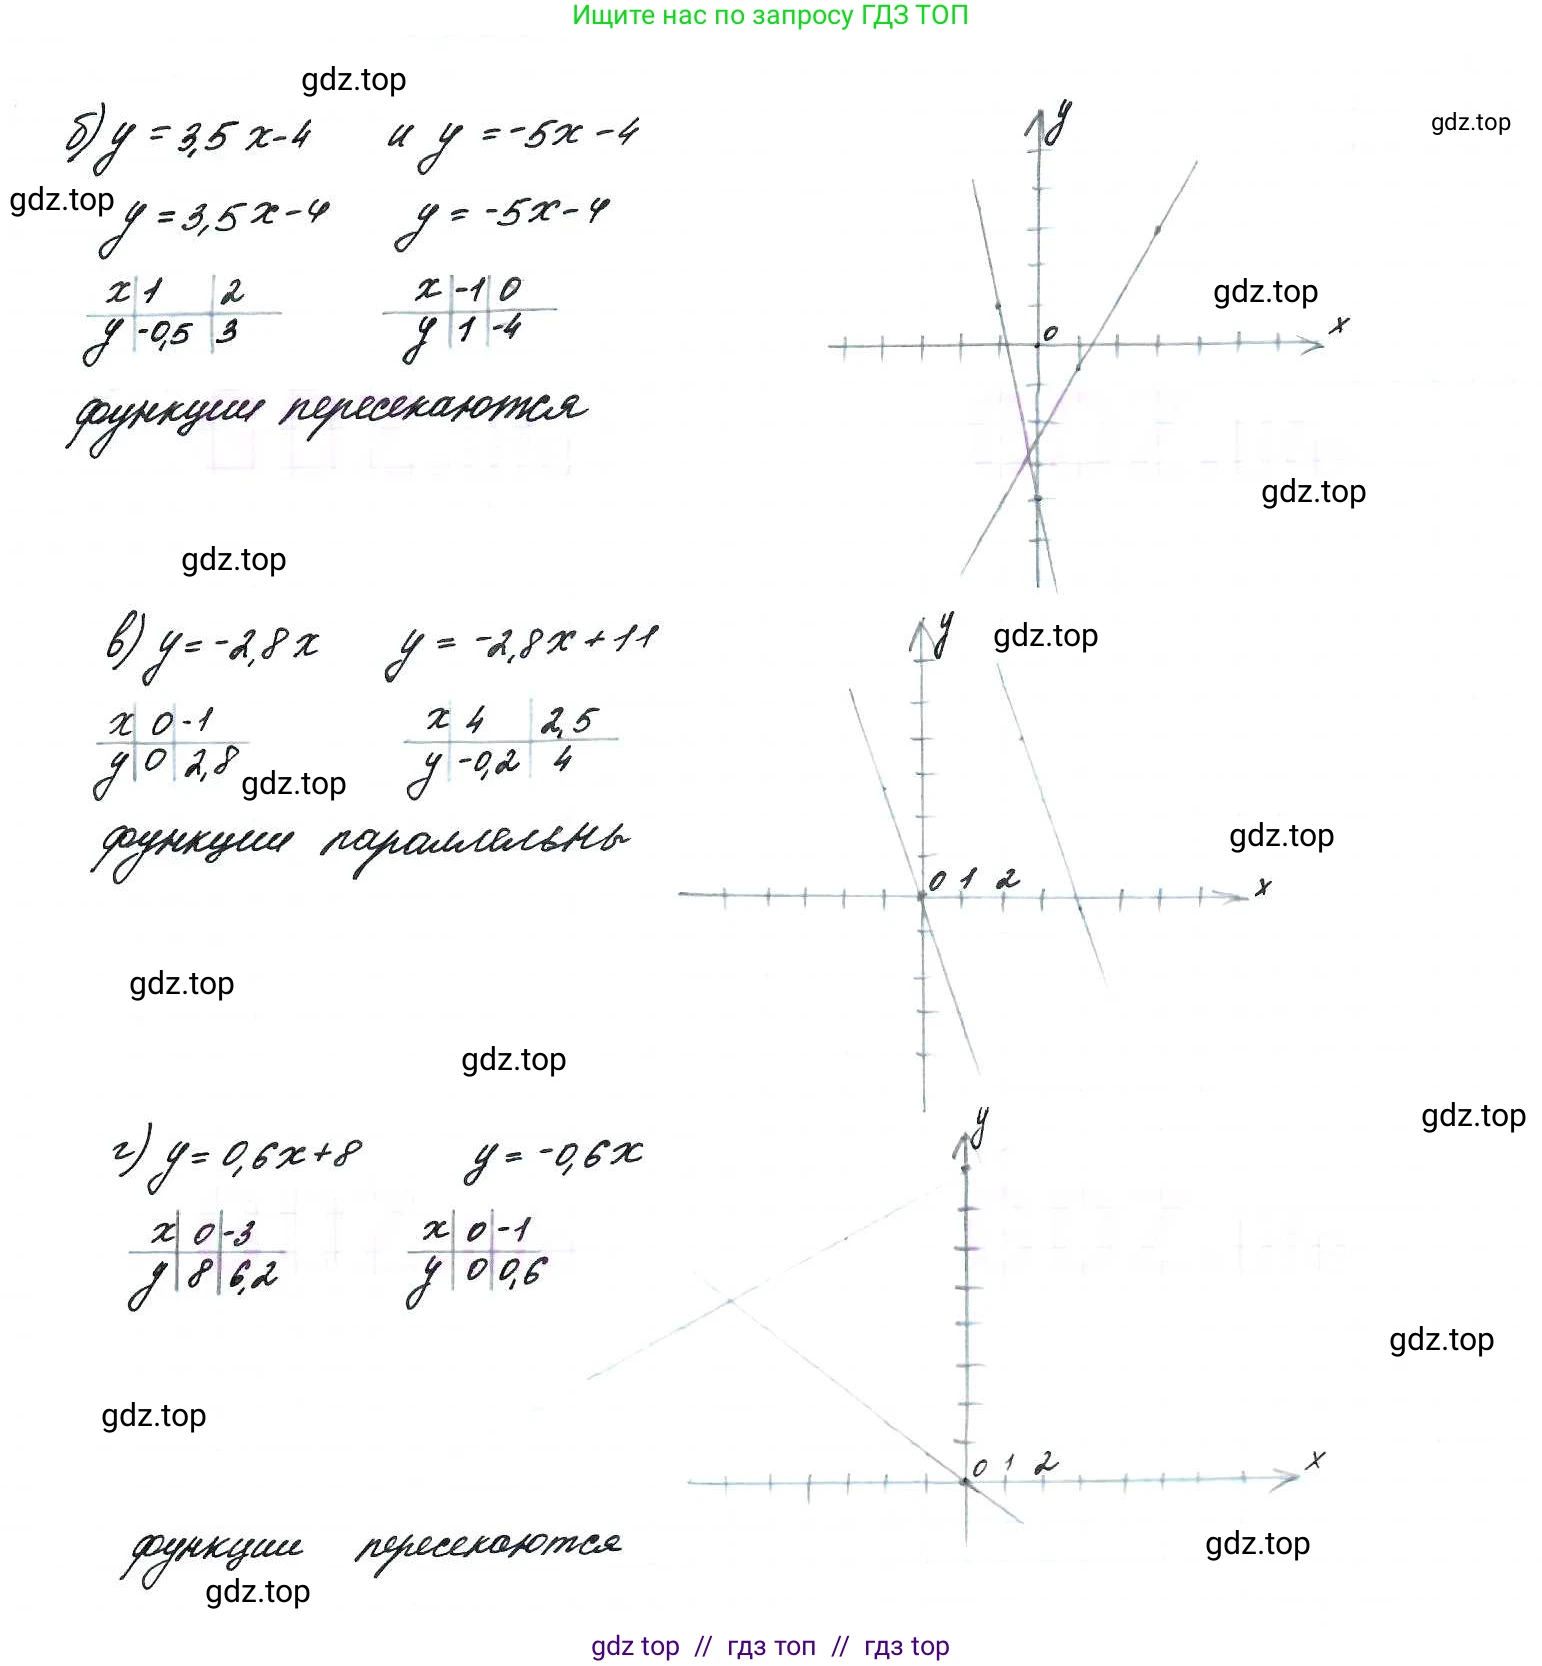 Ищите нас по запросу ГДЗ ТОП
gdz.top
gdz.top
б) y = 3,5x-4 и y = -5x-4
gdz.top
y = 3,5x-4 y = -5x-4
x 1 2 x -1 0
y -0,5 3 y 1 -4
функции пересекаются
y
gdz.top
x
0
gdz.top
gdz.top
в) y = -2,8x y = -2,8x+11
x 0 -1 x 4 2,5
y 0 2,8 y -0,2 4
gdz.top
функции параллельны
y
gdz.top
gdz.top
0 1 2 x
gdz.top
gdz.top
gdz.top
г) y = 0,6x+8 y = -0,6x
x 0 -3 x 0 -1
y 8 6,2 y 0 0,6
y
gdz.top
gdz.top
0 1 2 x
функции пересекаются
gdz.top
gdz.top
gdz top // гдз топ // гдз top